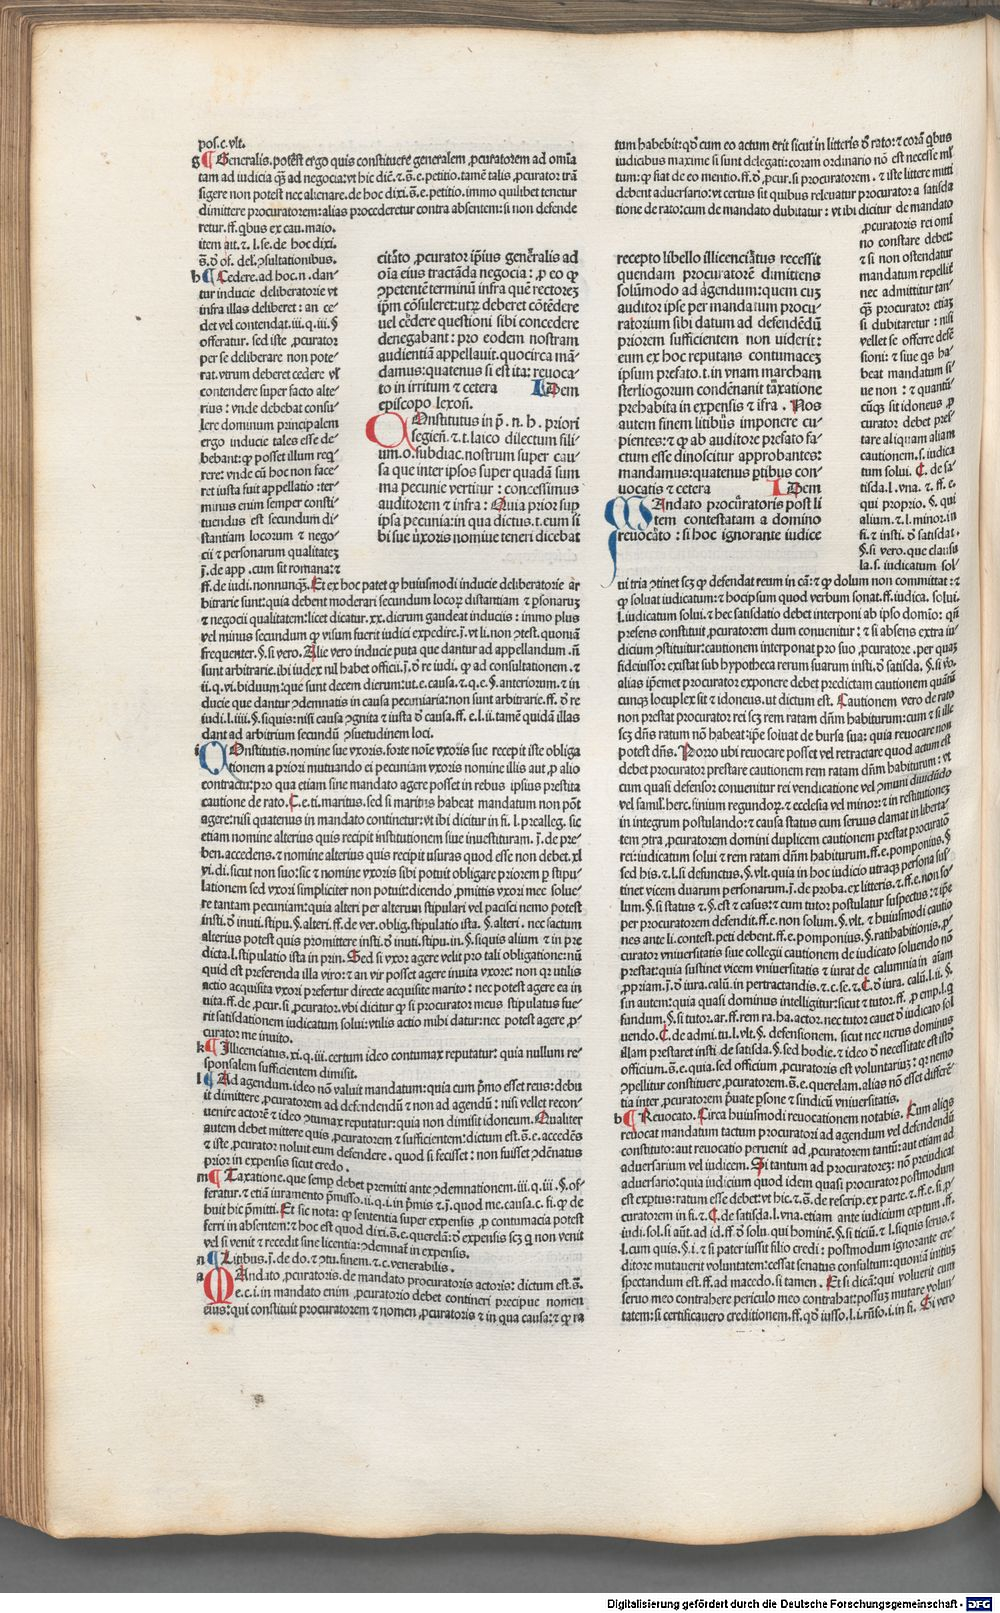 pos.c.vlt.
g Generalis. potest ergo quis constituere generalem ꝓcuratorem ad omnia
tam ad iudicia q̄ꝫ ad negocia: vt hic dic̄. ⁊ .s̄.e. petitio. tamē talis ꝓcurator trā
sigere non potest nec alienare. de hoc dixi .s̄.e. petitio. immo quilibet tenetur
dimittere procuratorem: alias procederetur contra absentem: si non defende
retur. ff. qbus ex cau. maio.
item ait. ⁊ .l. se. de hoc dixi.
s̄. de of. del. ꝯsultationibus.
h Cedere. ad hoc .n. dan-
tur inducie deliberatorie vt
infra illas deliberet: an ce-
det vel contendat. iii. q. iii. §
offeratur. sed iste ꝓcurator
per se deliberare non pote-
rat. vtrum deberet cedere vl
contendere super facto alte-
rius: vnde debebat consu-
lere dominum principalem
ergo inducie tales esse de-
bebant: ꝙ posset illum req-
rere: vnde cū hoc non face-
ret iusta fuit appellatio: ter-
minus enim semper consti-
tuendus est secundum di-
stantiam locorum ⁊ nego-
cii ⁊ personarum qualitateꝫ
j̄. de app. cum sit romana: ⁊
ff. de iudi. nonnunqꝫ. Et ex hoc patet ꝙ huiusmodi inducie deliberatorie ar
bitrarie sunt: quia debent moderari secundum locoꝝ distantiam ⁊ ꝑsonaruꝫ
⁊ negocii qualitatem: licet dicatur .xx. dierum gaudeat induciis: immo plus
vel minus secundum ꝙ visum fuerit iudici expedire. j̄. vt li. non ꝯtest. quoniā
frequenter. §. si vero. Alie vero inducie puta que dantur ad appellandum. nō
sunt arbitrarie. ibi iudex nil habet officii. j̄. de re iudi. ꝙ ad consultationem. ⁊
ii. q. vi. biduum: que sunt decem dierum: vt .e. causa. ⁊ .q.e. §. anteriorum. ⁊ in
ducie que dantur ꝯdemnatis in causa pecuniaria: non sunt arbitrarie. ff. de re
iudi. l. iiii. §. si quis: nisi causa ꝯgnita ⁊ iusta de causa. ff. e. l. ii. tamē quidā illas
dant ad arbitrium secundū ꝯsuetudinem loci.
i Constitutis. nomine sue vxoris. forte noīe vxoris sue recepit iste obliga
tionem a priori mutuando ei pecuniam vxoris nomine illis aut ꝓ alio
contractu: pro qua etiam sine mandato agere posset in rebus ipsius prestita
cautione de rato. C. e. ti. maritus. sed si maritus habeat mandatum non pōt
agere: nisi quatenus in mandato continetur: vt ibi dicitur in fi. l. prealleg. sic
etiam nomine alterius quis recipit institutionem siue inuestituram. j̄. de pre-
ben. accedens. ⁊ nomine alterius quis recipit vsuras quod esse non debet. xl
vi. di. sicut non suo: sic ⁊ nomine vxoris sibi potuit obligare priorem ꝑ stipu-
lationem sed vxori simpliciter non potuit: dicendo ꝓmittis vxori mee solue-
re tantam pecuniam: quia alteri per alterum stipulari vel pacisci nemo potest
insti. de inuti. stipu. §. alteri. ff. de ver. oblig. stipulatio ista. §. alteri. nec factum
alterius potest quis promittere insti. de inuti. stipu. in. §. si quis alium ⁊ in pre
dicta. l. stipulatio ista in prin. Sed si vxor agere velit pro tali obligatione: nū
quid est preferenda illa viro: ⁊ an vir posset agere inuita vxore: non qr vtilis
actio acquisita vxori prefertur directe acquisite marito: nec potest agere ea in
uita. ff. de ꝓcur. si ꝓcurator. vbi dicitur ꝙ si procurator meus stipulatus fue-
rit satisdationem iudicatum solui: vtilis actio mihi datur: nec potest agere ꝓ-
curator me inuito.
k Illicenciatus. xi. q. iii. certum ideo contumax reputatur: quia nullum re-
sponsalem sufficientem dimisit.
l Ad agendum. ideo nō valuit mandatum: quia cum ṗmo esset reus: debu
it dimittere ꝓcuratorem ad defendendū ⁊ non ad agendū: nisi vellet recon-
uenire actorē ⁊ ideo ꝯtumax reputatur: quia non dimisit idoneum. Qualiter
autem debet mittere quis ꝓcuratorem ⁊ sufficientem: dictum est .s̄.e. accedēs
⁊ iste ꝓcurator noluit eum defendere. quod si fecisset: non fuisset ꝯdēnatus
prior in expensis sicut credo.
m Taxatione. que semp debet premitti ante ꝯdemnationem. iii. q. iii. §. of-
feratur. ⁊ etiā iuramento ṗmisso. ii. q. i. in ṗmis ⁊ j̄. quod me. causa. c. fi. ꝙ de
buit hic ṗmitti. Et sic nota: ꝙ sententia super expensis ꝓ contumacia potest
ferri in absentem: ⁊ hoc est quod dixi .s̄.e. querelā: de expensis scꝫ q non venit
vel si venit ⁊ recedit sine licentia: ꝯdemnat in expensis.
n Litibus. j̄. de do. ⁊ ꝯtu. finem. ⁊ c. venerabilis.
a Mandato ꝓcuratoris. de mandato procuratoris actoris: dictum est .s̄.
e. c. i. in mandato enim ꝓcuratorio debet contineri precipue nomen
eius: qui constituit procuratorem ⁊ nomen ꝓcuratoris ⁊ in qua causa: ⁊ ꝙ ra
citāto ꝓcurator ip̄ius gener̄alis ad
oīa eius tractāda negocia: ꝓ eo ꝙ
ꝯpetentē terminū infra quē rectoreꝫ
ip̄m cōsuleret: utꝝ deberet cōtēdere
uel cēdere questioni sibi concedere
denegabant: pro eodem nostram
audientiā appellauit. quocirca mā-
damus: quatenus si est ita: reuoca-
to in irritum ⁊ cetera IDem
episcopo lexoń.
COnstitutus in p̄. n. h. priori
segień. ⁊ .t. laico dilectum fili
um .o. subdiac. nostrum super cau-
sa que inter ipsos super quadā sum
ma pecunie vertitur: concessimus
auditorem ⁊ infra: Quia prior sup
ipsa pecunia: in qua dictus .t. eum si
bi sue uxoris nomine teneri dicebat
recepto libello illicenciatus recessit
quendam procuratorē dimittens
solūmodo ad agendum: quem cuꝫ
auditor ipse per mandatum procu-
ratorium sibi datum ad defendēdū
priorem sufficientem non uiderit:
eum ex hoc reputans contumaceꝫ
ipsum prefato .t. in vnam marcham
sterliogorum condēnauit taxatione
prehabita in expensis ⁊ ifra. Nos
autem finem litibus imponere cu-
pientes: ⁊ ꝙ ab auditore prefato fa-
ctum esse dinoscitur approbantes:
mandamus: quatenus ꝑtibus con-
uocatis ⁊ cetera IDem
MAndato procuratoris post li
tem contestatam a domino
reuocato: si hoc ignorante iudice
tum habebit: qd cum eo actum erit sicut in litteris de rato: ⁊ corā qbus
iudicibus maxime si sunt delegati: coram ordinario nō est necesse ml
tum: ꝙ fiat de eo mentio. ff. de ꝓcur. si procuratorem. ⁊ iste littere mitti
debent aduersario: vt certus sit quibus releuatur procurator a satisda
tione de rato: cum de mandato dubitatur: vt ibi dicitur de mandato
ꝓcuratoris rei oml
no constare debet:
⁊ si non ostendatur
mandatum repellit̄
nec admittitur tan-
q̄ꝫ procurator etiaꝫ
si dubitaretur: nisi
vellet se offerre defē
sioni: ⁊ siue qs ha-
beat mandatum si
ue non: ⁊ quantū
cūqꝫ sit idoneus ꝓ
curator debet pres
tare aliquam aliam
cautionem. s. iudica
tum solui. C. de sa-
tisda. l. vna. ⁊ ff. e.
qui proprio. §. qui
alium. ⁊ l. minor. in
fi. ⁊ insti. de satisdat.
§. si vero. que clausu
la. s. iudicatum sol
ui tria ꝯtinet scꝫ ꝙ defendat reum in cā: ⁊ ꝙ dolum non committat: ⁊
ꝙ soluat iudicatum: ⁊ hoc ipsum quod verbum sonat. ff. iudica. solui.
l. iudicatum solui. ⁊ hec satisdatio debet interponi ab ipso domīo: qn̄
presens constituit ꝓcuratorem dum conuenitur: ⁊ si absens extra iu-
dicium ꝯstituitur: cautionem interponat pro suo ꝓcuratore. per quaꝫ
fideiussor existat sub hypotheca rerum suarum insti. de satisda. §. si vo.
alias ip̄emet procurator exponere debet predictam cautionem quantū
cunqꝫ locuplex sit ⁊ idoneus. ut dictum est. Cautionem vero de rato
non prestat procurator rei scꝫ rem ratam dn̄m habiturum: cum ⁊ si ille
scꝫ dn̄s ratum nō habeat: ip̄e soluat de bursa sua: quia reuocare non
potest dn̄s. Porro ubi reuocare posset vel retractare quod actum est
debet procurator prestare cautionem rem ratam dn̄m habiturum: vt
cum quasi defensor conuenitur rei vendicatione vel ꝯmuni diuidūdo
vel famil. herc. finium regundoꝝ. ⁊ ecclesia vel minor: ⁊ in restitutioneꝫ
in integrum postulando: ⁊ causa status cum seruus clamat in liberta-
tem ꝯtra ꝓcuratorem domini duplicem cautionem prestat procurator
rei: iudicatum solui ⁊ rem ratam dn̄m habiturum. ff. e. pomponius. §
sed his. ⁊ l. si defunctus. §. vlt. quia in hoc iudicio utraqꝫ persona sus-
tinet vicem duarum personarum. j̄. de proba. ex litteris. ⁊ ff. e. non so-
lum. §. si status ⁊ .§. est ⁊ casus: ⁊ cum tutor postulatur suspectus: ⁊ ip̄e
per procuratorem defendit. ff. e. non solum. §. vlt. ⁊ huiusmodi cautio
nes ante li. contest. peti debent. ff. e. pomponius. §. ratihabitionis. ꝓ-
curator vniuersitatis siue collegii cautionem de iudicato soluendo nō
prestat: quia sustinet vicem vniuersitatis ⁊ iurat de calumnia in aiam
ꝓpriam. j̄. de iura. calū. in pertractandis. ⁊ c. se. ⁊ C. de iura. calū. l. ii. §.
sin autem: quia quasi dominus intelligitur: sicut ⁊ tutor. ff. ꝓ emp. l. q
fundum. §. si tutor. ar. ff. rem ra. ha. actor. nec tutor cauet de iudicato sol
uendo. C. de admi. tu. l. vlt. §. defensionem. sicut nec uerus dominus
illam prestaret insti de satisda. §. sed hodie. ⁊ ideo de necessitate est istō
officium. s̄. e. quia. sed officium ꝓcuratoris est voluntarius: qr nemo
ꝯpellitur constituere ꝓcuratorem. s̄. e. querelam. alias nō esset differē-
tia inter ꝓcuratorem ṗuate ꝑsone ⁊ sindicū vniuersitatis.
b Reuocato. Circa huiusmodi reuocationem notabis. Cum aliqs
reuocat mandatum tactum procuratori ad agendum vel defendendū
constituto: aut reuocatio peruenit ad ꝓcuratorem tantū: aut etiam ad
aduersarium vel iudicem. Si tantum ad procuratoreꝫ: nō preiudicat
aduersario: quia iudicium quod idem quasi procurator postmodum
est exptus: ratum esse debet: vt hic. ⁊ .s̄. de rescrip. ex parte. ⁊ ff. e. si ꝓ-
curatorem in fi. ⁊ .C. de satisda. l. vna. etiam ante iudicium ceptum. ff.
iudi. sol. si aūt. ad id. ff. de solu. qui hominē. §. si ticiū. ⁊ l. si quis seruo. ⁊
l. cum quis. §. i. ⁊ si pater iussit filio credi: postmodum ignorante cre-
ditore mutauerit voluntatem: cessat senatus consultum: quoniā initiuꝫ
spectandum est. ff. ad macedo. si tamen. Et si dicā: qui voluerit cum
seruo meo contrahere periculo meo contrahat: possuꝫ mutare volun-
tatem: si certificauero creditionem. ff. qd iusso. l. i. rn̄so. i. in fi. Si vero
Digitalisierung gefördert durch die Deutsche Forschungsgemeinschaft - DFG